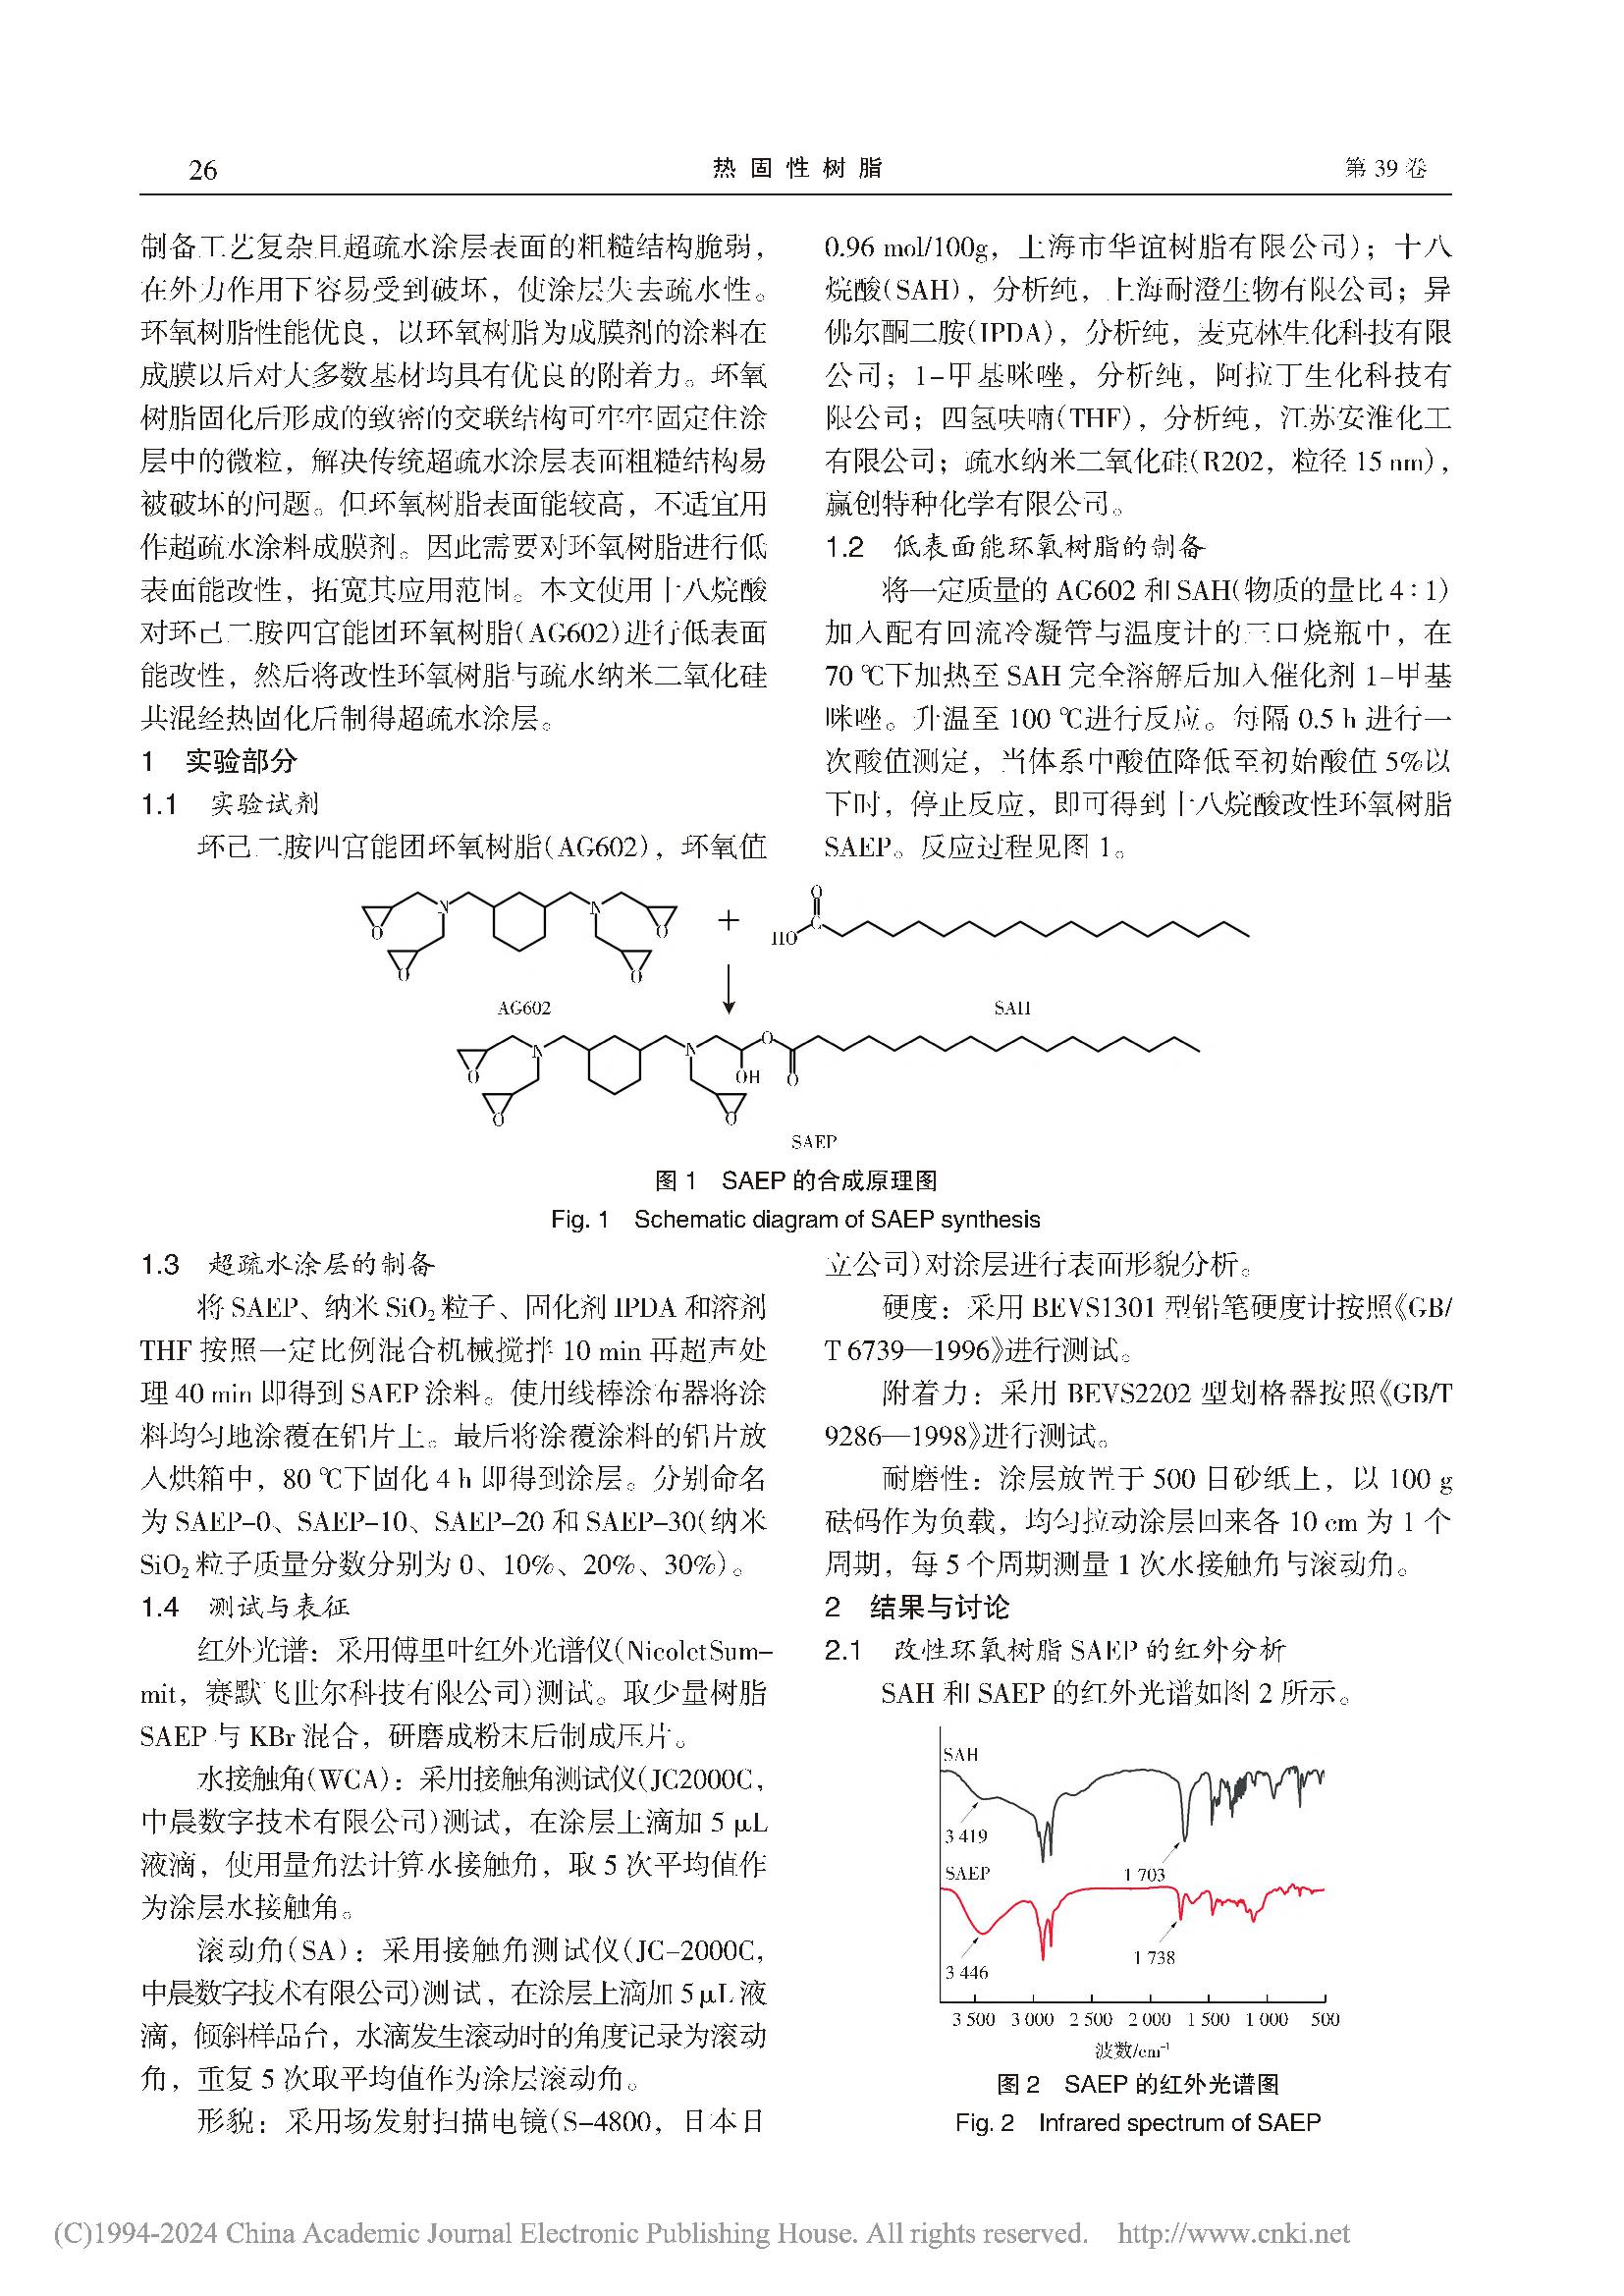 26
热固性树脂
第 39 卷
制备工艺复杂且超疏水涂层表面的粗糙结构脆弱，
在外力作用下容易受到破坏，使涂层失去疏水性。
环氧树脂性能优良，以环氧树脂为成膜剂的涂料在
成膜以后对大多数基材均具有优良的附着力。环氧
树脂固化后形成的致密的交联结构可牢牢固定住涂
层中的微粒，解决传统超疏水涂层表面粗糙结构易
被破坏的问题。但环氧树脂表面能较高，不适宜用
作超疏水涂料成膜剂。因此需要对环氧树脂进行低
表面能改性，拓宽其应用范围。本文使用十八烷酸
对环己二胺四官能团环氧树脂(AG602)进行低表面
能改性，然后将改性环氧树脂与疏水纳米二氧化硅
共混经热固化后制得超疏水涂层。
1 实验部分
1.1 实验试剂
环己二胺四官能团环氧树脂(AG602)，环氧值
0.96 mol/100g，上海市华谊树脂有限公司)；十八
烷酸(SAH)，分析纯，上海耐澄生物有限公司；异
佛尔酮二胺(IPDA)，分析纯，麦克林生化科技有限
公司；1-甲基咪唑，分析纯，阿拉丁生化科技有
限公司；四氢呋喃(THF)，分析纯，江苏安淮化工
有限公司；疏水纳米二氧化硅(R202，粒径 15 nm)，
赢创特种化学有限公司。
1.2 低表面能环氧树脂的制备
将一定质量的 AG602 和 SAH(物质的量比 4∶1)
加入配有回流冷凝管与温度计的三口烧瓶中，在
70 ℃下加热至 SAH 完全溶解后加入催化剂 1-甲基
咪唑。升温至 100 ℃进行反应。每隔 0.5 h 进行一
次酸值测定，当体系中酸值降低至初始酸值 5%以
下时，停止反应，即可得到十八烷酸改性环氧树脂
SAEP。反应过程见图 1。
O N N O + HO C O
O O
AG602 SAH
O N N O
O O OH O
SAEP
图 1 SAEP 的合成原理图
Fig. 1 Schematic diagram of SAEP synthesis
1.3 超疏水涂层的制备
将 SAEP、纳米 SiO₂ 粒子、固化剂 IPDA 和溶剂
THF 按照一定比例混合机械搅拌 10 min 再超声处
理 40 min 即得到 SAEP 涂料。使用线棒涂布器将涂
料均匀地涂覆在铝片上。最后将涂覆涂料的铝片放
入烘箱中，80 ℃下固化 4 h 即得到涂层。分别命名
为 SAEP-0、SAEP-10、SAEP-20 和 SAEP-30(纳米
SiO₂ 粒子质量分数分别为 0、10%、20%、30%)。
1.4 测试与表征
红外光谱：采用傅里叶红外光谱仪(Nicolet Sum-
mit，赛默飞世尔科技有限公司)测试。取少量树脂
SAEP 与 KBr 混合，研磨成粉末后制成压片。
水接触角(WCA)：采用接触角测试仪(JC2000C，
中晨数字技术有限公司)测试，在涂层上滴加 5 μL
液滴，使用量角法计算水接触角，取 5 次平均值作
为涂层水接触角。
滚动角(SA)：采用接触角测试仪(JC-2000C，
中晨数字技术有限公司)测试，在涂层上滴加 5 μL 液
滴，倾斜样品台，水滴发生滚动时的角度记录为滚动
角，重复 5 次取平均值作为涂层滚动角。
形貌：采用场发射扫描电镜(S-4800，日本日
立公司)对涂层进行表面形貌分析。
硬度：采用 BEVS1301 型铅笔硬度计按照《GB/
T 6739—1996》进行测试。
附着力：采用 BEVS2202 型划格器按照《GB/T
9286—1998》进行测试。
耐磨性：涂层放置于 500 目砂纸上，以 100 g
砝码作为负载，均匀拉动涂层回来各 10 cm 为 1 个
周期，每 5 个周期测量 1 次水接触角与滚动角。
2 结果与讨论
2.1 改性环氧树脂 SAEP 的红外分析
SAH 和 SAEP 的红外光谱如图 2 所示。
SAH
3 419
1 703
SAEP
3 446
1 738
3 500 3 000 2 500 2 000 1 500 1 000 500
波数/cm⁻¹
图 2 SAEP 的红外光谱图
Fig. 2 Infrared spectrum of SAEP
(C)1994-2024 China Academic Journal Electronic Publishing House. All rights reserved. http://www.cnki.net